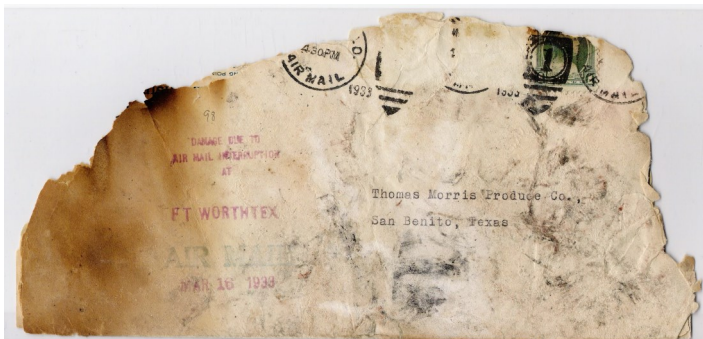 4:30 PM
AIR MAIL
1933
1933
AIR MAIL
98
DAMAGE DUE TO
AIR MAIL INTERRUPTION
AT
FT WORTH TEX
AIR MAIL
MAR 16 1933
Thomas Morris Produce Co.,
San Benito, Texas